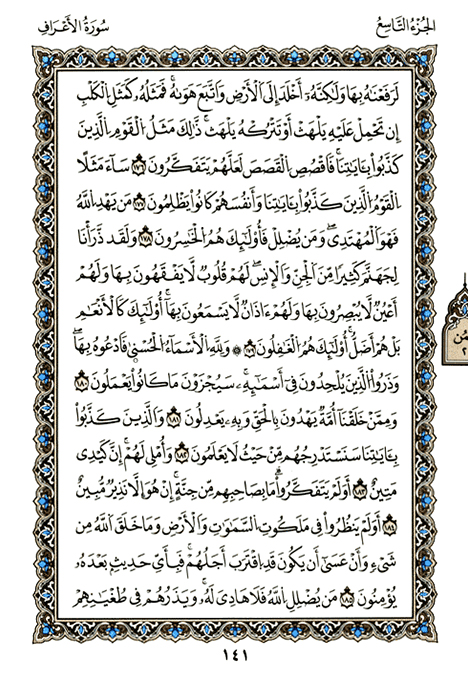 الجزء التاسع
سورة الأعراف
لَرَفَعْنَٰهُ بِهَا وَلَٰكِنَّهُۥٓ أَخْلَدَ إِلَى ٱلْأَرْضِ وَٱتَّبَعَ هَوَىٰهُ ۚ فَمَثَلُهُۥ كَمَثَلِ ٱلْكَلْبِ
إِن تَحْمِلْ عَلَيْهِ يَلْهَثْ أَوْ تَتْرُكْهُ يَلْهَث ۚ ذَّٰلِكَ مَثَلُ ٱلْقَوْمِ ٱلَّذِينَ
كَذَّبُوا۟ بِـَٔايَٰتِنَا ۚ فَٱقْصُصِ ٱلْقَصَصَ لَعَلَّهُمْ يَتَفَكَّرُونَ ١٧٦ سَآءَ مَثَلًا
ٱلْقَوْمُ ٱلَّذِينَ كَذَّبُوا۟ بِـَٔايَٰتِنَا وَأَنفُسَهُمْ كَانُوا۟ يَظْلِمُونَ ١٧٧ مَن يَهْدِ ٱللَّهُ
فَهُوَ ٱلْمُهْتَدِى ۖ وَمَن يُضْلِلْ فَأُو۟لَٰٓئِكَ هُمُ ٱلْخَٰسِرُونَ ١٧٨ وَلَقَدْ ذَرَأْنَا
لِجَهَنَّمَ كَثِيرًا مِّنَ ٱلْجِنِّ وَٱلْإِنسِ ۖ لَهُمْ قُلُوبٌ لَّا يَفْقَهُونَ بِهَا وَلَهُمْ
أَعْيُنٌ لَّا يُبْصِرُونَ بِهَا وَلَهُمْ ءَاذَانٌ لَّا يَسْمَعُونَ بِهَآ ۚ أُو۟لَٰٓئِكَ كَٱلْأَنْعَٰمِ
بَلْ هُمْ أَضَلُّ ۚ أُو۟لَٰٓئِكَ هُمُ ٱلْغَٰفِلُونَ ١٧٩ ۞ وَلِلَّهِ ٱلْأَسْمَآءُ ٱلْحُسْنَىٰ فَٱدْعُوهُ بِهَا ۖ
وَذَرُوا۟ ٱلَّذِينَ يُلْحِدُونَ فِىٓ أَسْمَٰٓئِهِۦ ۚ سَيُجْزَوْنَ مَا كَانُوا۟ يَعْمَلُونَ ١٨٠
وَمِمَّنْ خَلَقْنَآ أُمَّةٌ يَهْدُونَ بِٱلْحَقِّ وَبِهِۦ يَعْدِلُونَ ١٨١ وَٱلَّذِينَ كَذَّبُوا۟
بِـَٔايَٰتِنَا سَنَسْتَدْرِجُهُم مِّنْ حَيْثُ لَا يَعْلَمُونَ ١٨٢ وَأُمْلِى لَهُمْ ۚ إِنَّ كَيْدِى
مَتِينٌ ١٨٣ أَوَلَمْ يَتَفَكَّرُوا۟ ۗ مَا بِصَاحِبِهِم مِّن جِنَّةٍ ۚ إِنْ هُوَ إِلَّا نَذِيرٌ مُّبِينٌ
١٨٤ أَوَلَمْ يَنظُرُوا۟ فِى مَلَكُوتِ ٱلسَّمَٰوَٰتِ وَٱلْأَرْضِ وَمَا خَلَقَ ٱللَّهُ مِن
شَىْءٍ وَأَنْ عَسَىٰٓ أَن يَكُونَ قَدِ ٱقْتَرَبَ أَجَلُهُمْ ۖ فَبِأَىِّ حَدِيثٍۭ بَعْدَهُۥ
يُؤْمِنُونَ ١٨٥ مَن يُضْلِلِ ٱللَّهُ فَلَا هَادِىَ لَهُۥ ۚ وَيَذَرُهُمْ فِى طُغْيَٰنِهِمْ
١٤١